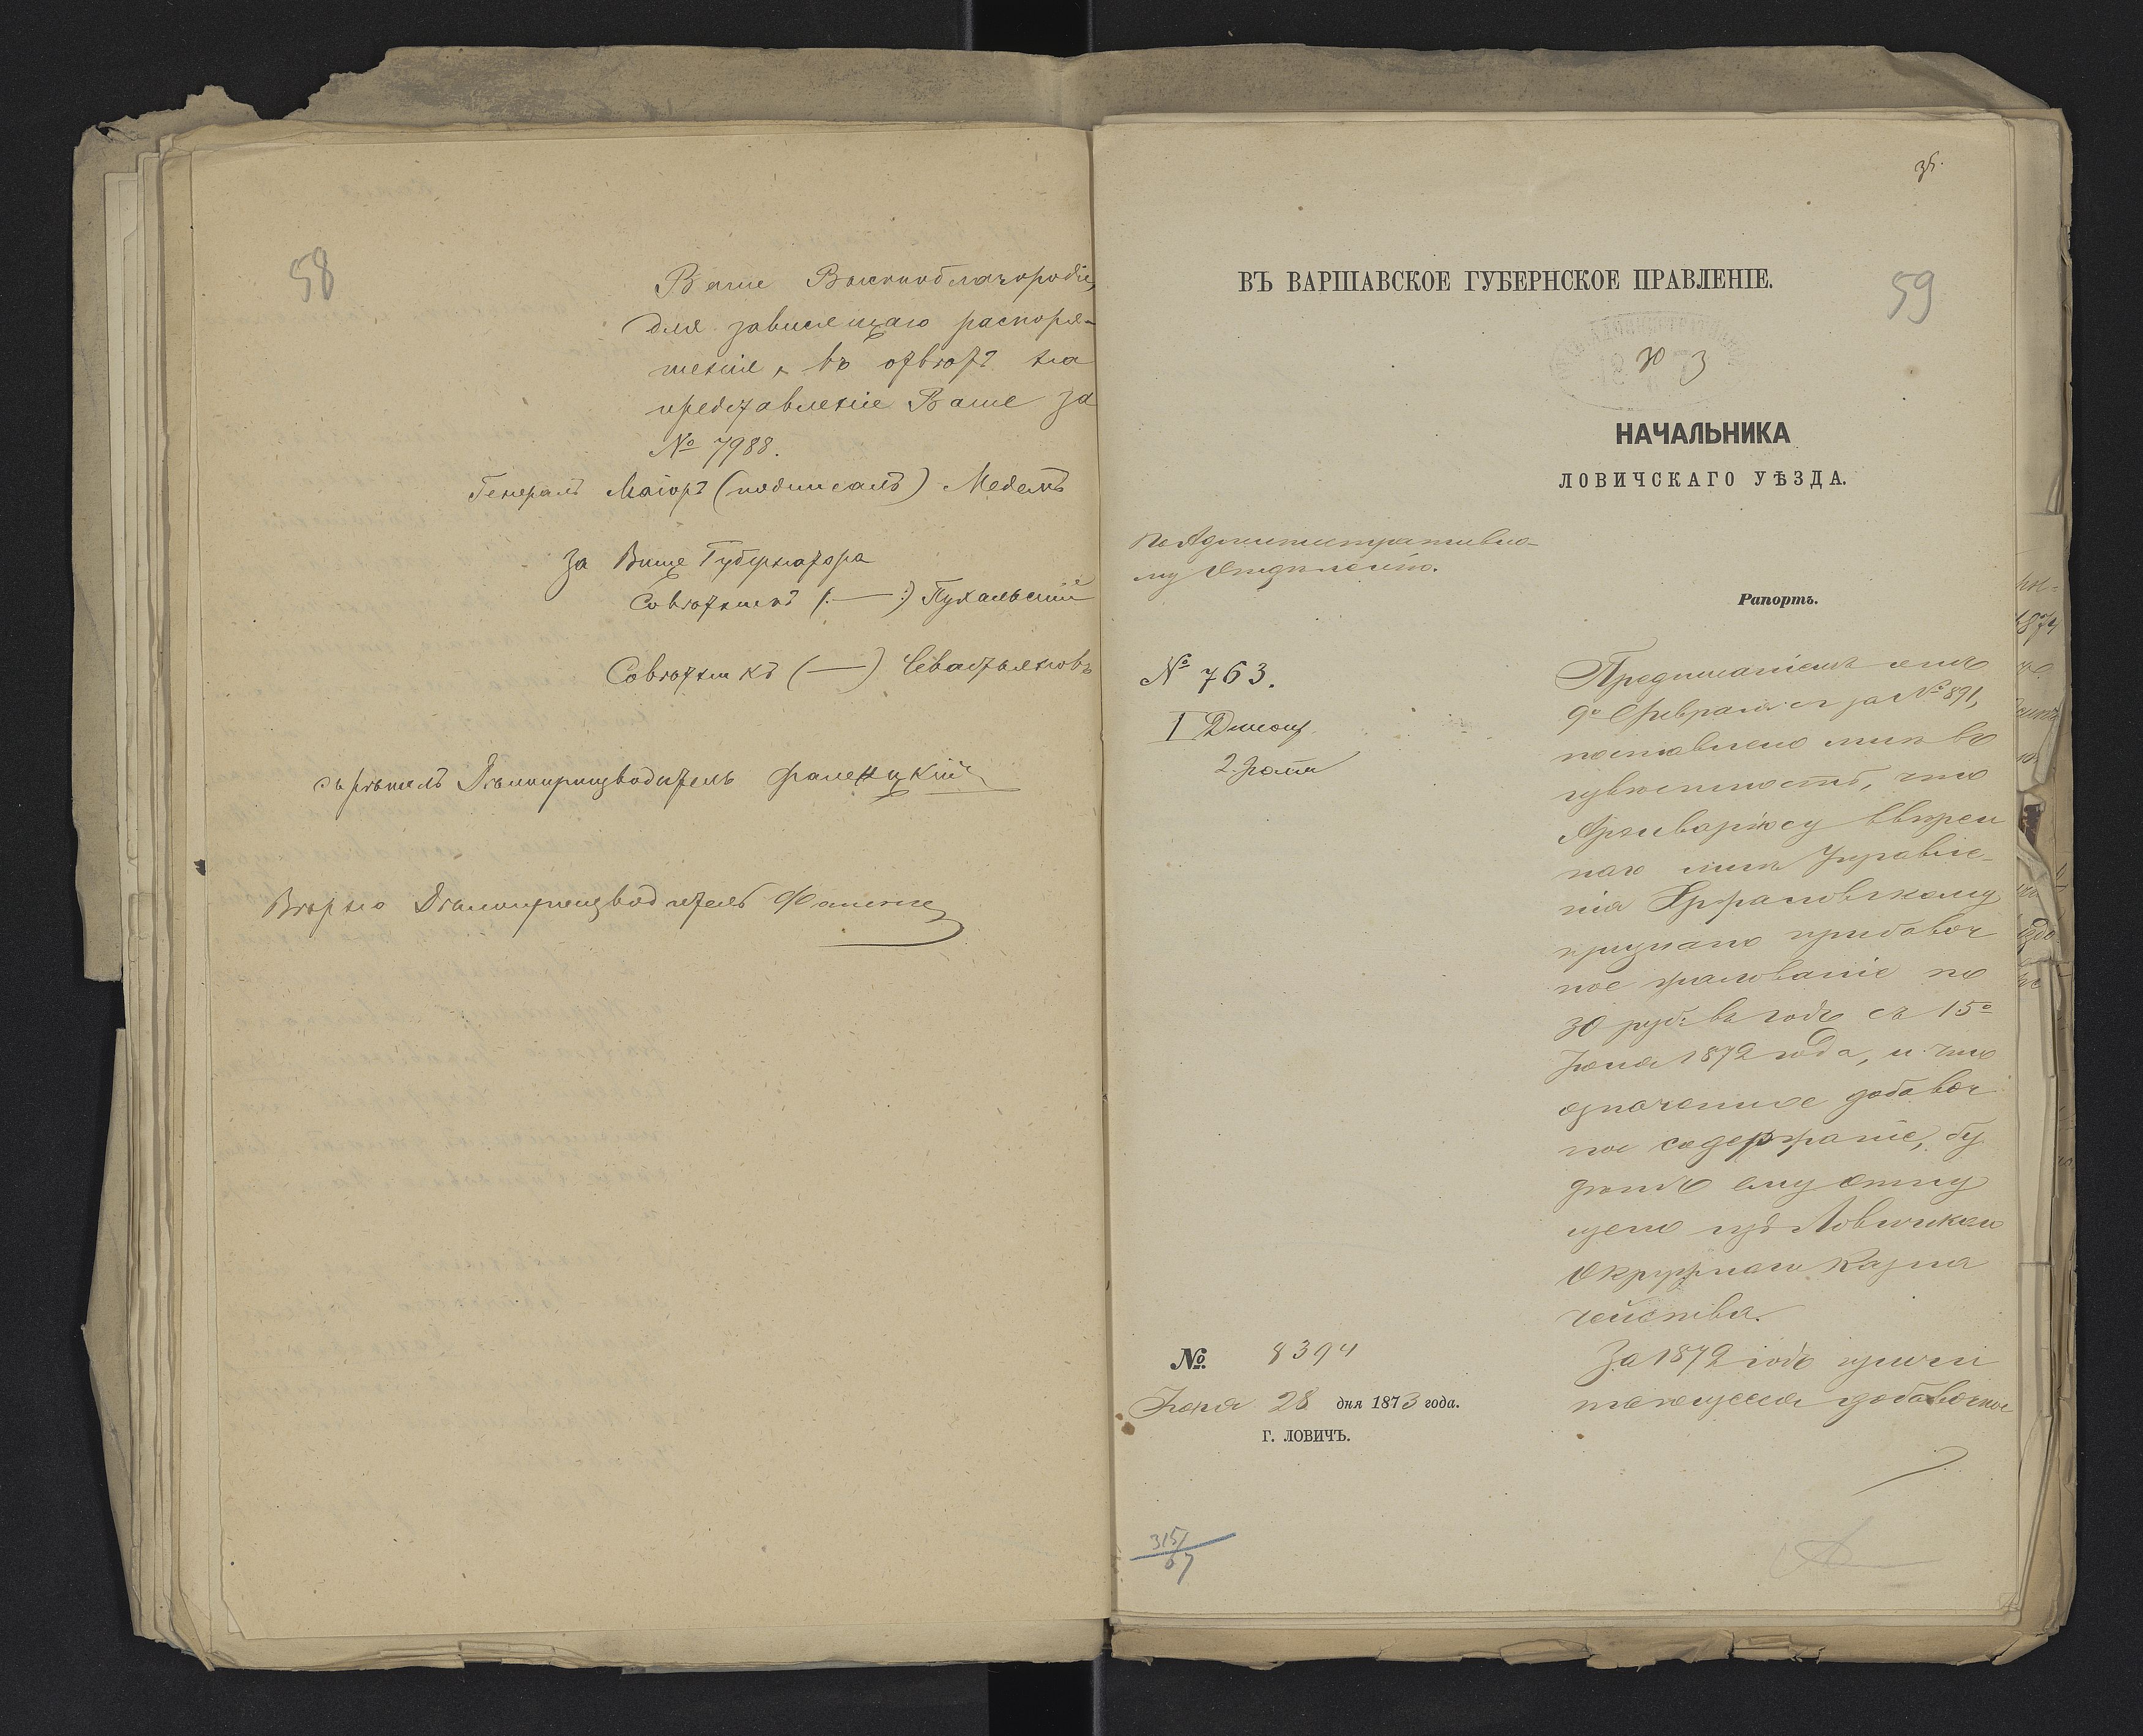 58
Ваше Высокоблагородіе,
для зависящаго распоря-
женія, въ отвѣтъ на
представленіе Ваше за
№ 7988.
Генералъ Маіоръ (подписалъ) Медемъ
За Вице Губернатора
Совѣтникъ (:—:) Пухальскій
Совѣтникъ (—) Севастьяновъ
Дѣлопроизводитель
Вѣрно Дѣлопроизводитель
59
ВЪ ВАРШАВСКОЕ ГУБЕРНСКОЕ ПРАВЛЕНІЕ.
НАЧАЛЬНИКА
ЛОВИЧСКАГО УѢЗДА.
По Административно-
му Отдѣленію.
Рапортъ.
№ 763.
I
2
Предписаніемъ отъ
9го Февраля с г за № 891,
поставлено мнѣ въ
извѣстность, что
Архиваріусу ввѣрен
наго мнѣ Управле-
нія
признано прибавоч
ное жалованіе по
30 руб: въ годъ съ 15го
Іюня 1872 года, и что
означенное добавоч
ное содержаніе, бу
детъ ему отпу
щено изъ Ловичскаго
Окружнаго Казна
чейства.
За 1872 годъ причи
тающееся добавочное
№ 8394
Іюня 28 дня 1873 года.
Г. ЛОВИЧЪ.
315/67